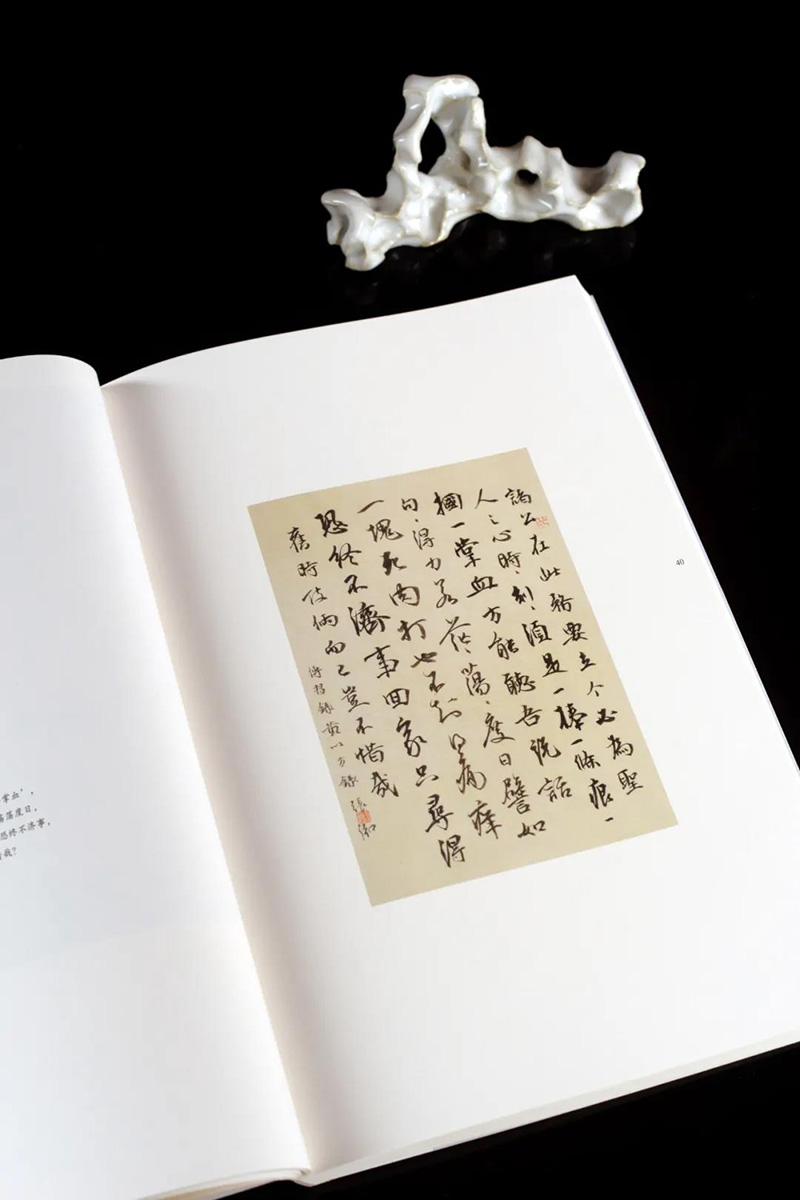 掌血’,
荡度日,
恐终不济事,
哉?
諸公在此務要立个必為聖
人之心時〻刻〻須是一棒一條痕一
摑一掌血方能聽吾説話
句〻得力若茫〻蕩〻度日譬如
一塊死肉打也不知得痛痒
恐終不濟事回家只尋得
舊時伎倆而已豈不惜哉
傳習錄黄以方錄
40